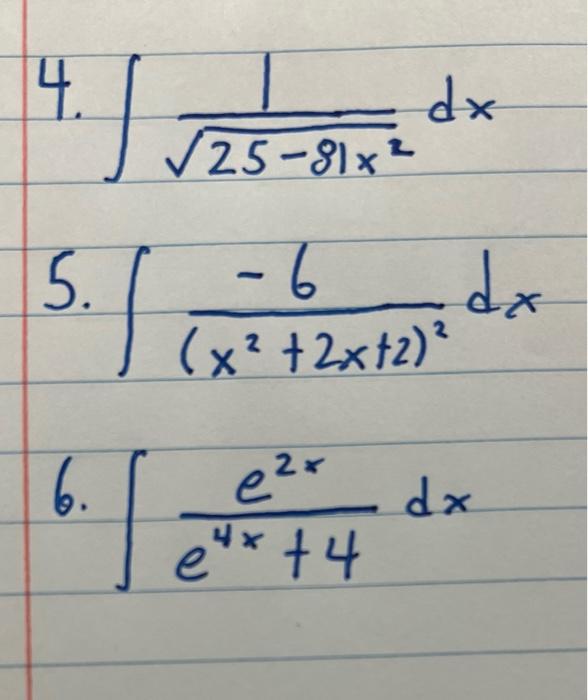 4. ∫ 1/√(25-81x²) dx
5. ∫ -6/(x²+2x+2)² dx
6. ∫ e^(2x)/(e^(4x)+4) dx